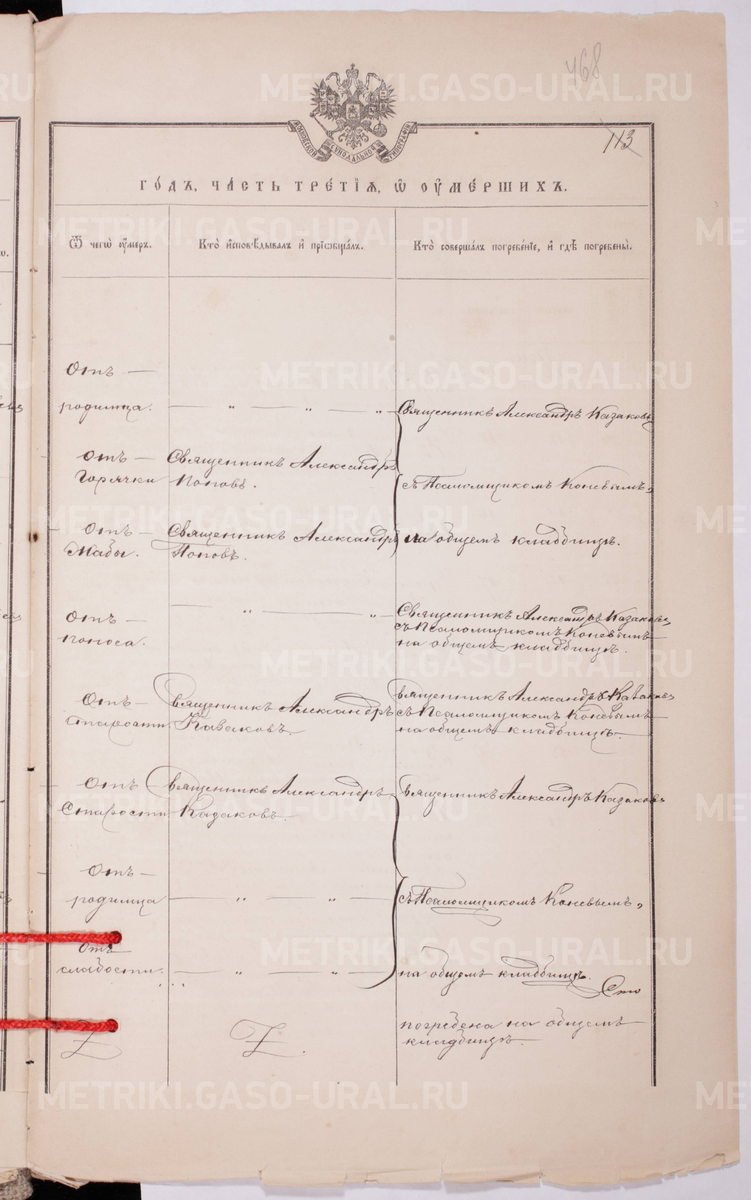 468
113
МОСКОВСКОЙ СѴНОДАЛЬНОЙ ТИПОГРАФІИ
ГОДЪ, ЧАСТЬ ТРЕТІЯ, Ѽ ОУМЕРШИХЪ.
Ѿ чегѡ оумеръ.
Кто исповѣдывалъ и пріобщалъ.
Кто совершалъ погребеніе, и гдѣ погребены.
Отъ —
родимца. — " — " — " Священникъ Александръ Казаковъ
Отъ — Священникъ Александръ
Горячки Поповъ. съ Псаломщикомъ Коневымъ,
Отъ — Священникъ Александръ на общемъ кладбищѣ.
Жабы. Поповъ.
Отъ — — " — " Священникъ Александръ Казаковъ
поноса. съ Псаломщикомъ Коневымъ
на общемъ кладбищѣ.
Отъ — Священникъ Александръ Священникъ Александръ Казаковъ
старости Казаковъ. съ Псаломщикомъ Коневымъ
на общемъ кладбищѣ.
Отъ Священникъ Александръ Священникъ Александръ Казаковъ
Старости Казаковъ.
Отъ —
родимца — " — " — съ Псаломщикомъ Коневымъ,
Отъ
слабости. — " — " — на общемъ кладбищѣ.
погребена на общемъ
кладбищѣ.
METRIKI.GASO-URAL.RU